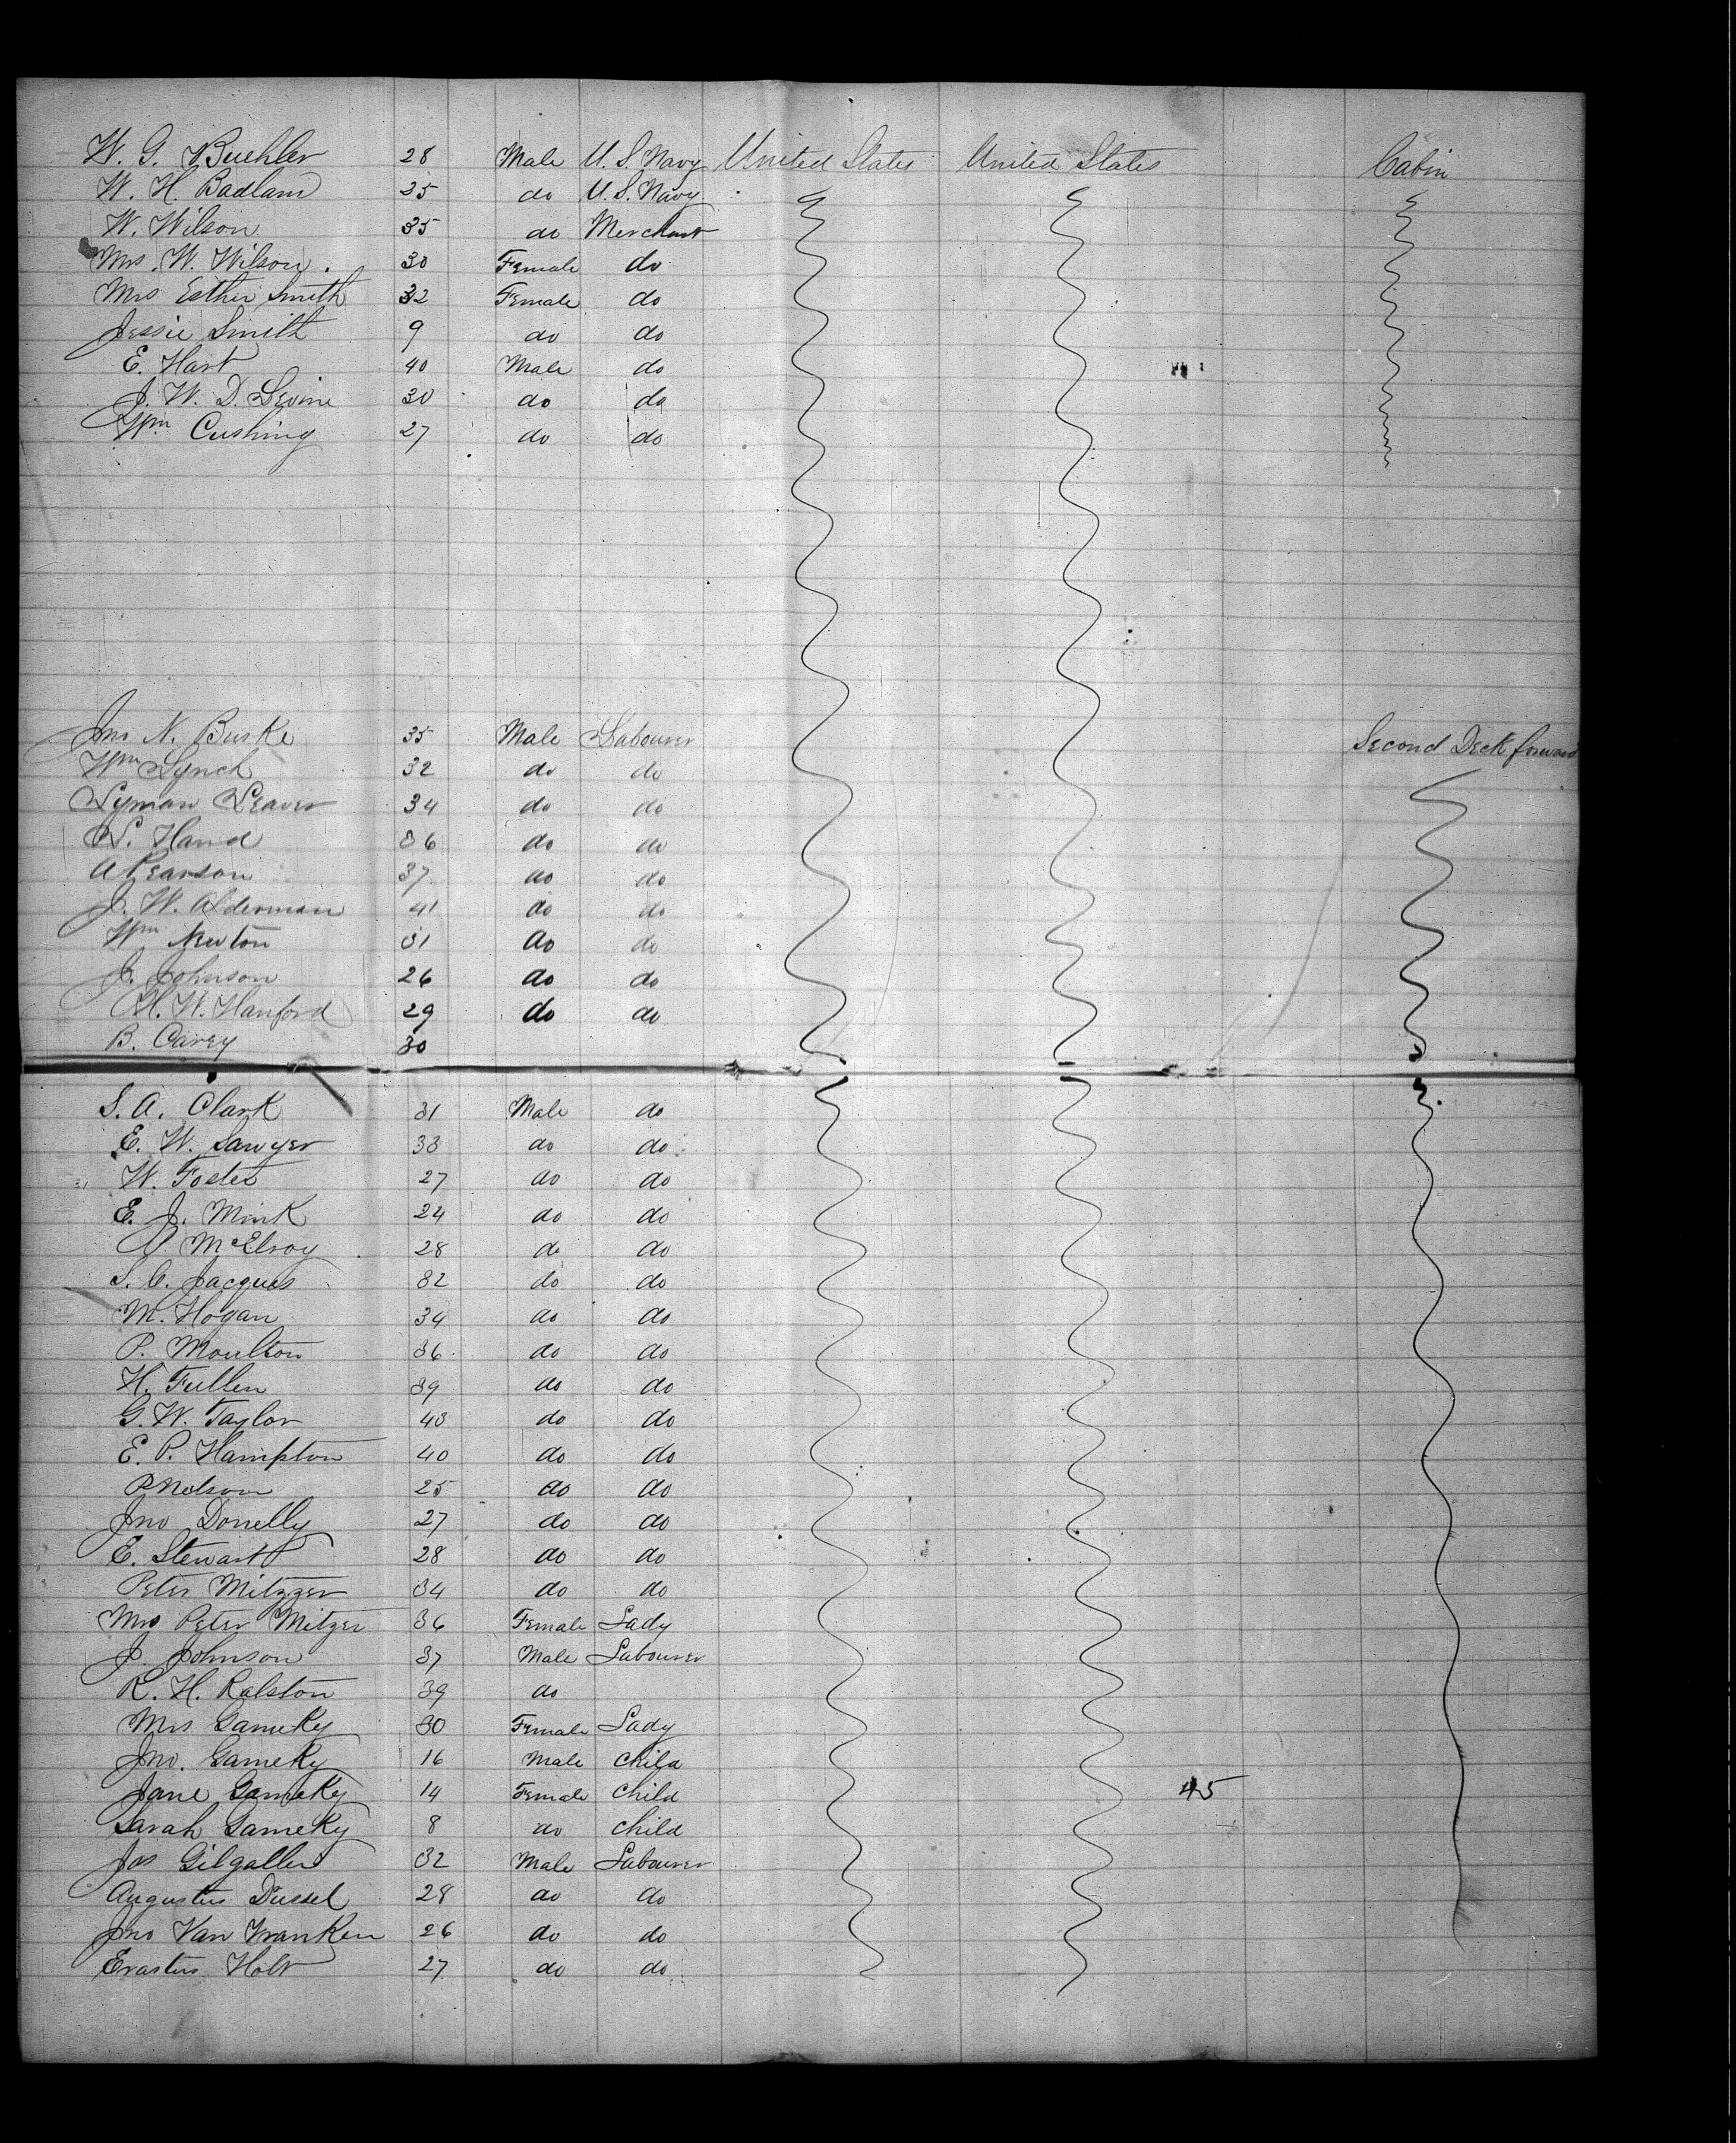 W. G. Buehler 28 Male U.S. Navy United States United States Cabin
W. H. Badlam 35 do U.S. Navy
W. Wilson 35 do Merchant
Mrs. W. Wilson. 30 Female do
Mrs Esther Smith 32 Female do
Jessie Smith 9 do do
E. Hart 40 Male do
J. W. D. Levine 30 do do
Wm Cushing 27 do do
Jno N. Burke 35 Male Labourer Second Deck forward
Wm Lynch 32 do do
Lyman Leaver 34 do do
Hand 36 do do
A Pearson 37 do do
J. W. Alderman 41 do do
Wm Newton 31 do do
J. Johnson 26 do do
W. Hanford 29 do do
B. Carey 30
S. A. Clark 31 Male do
E. W. Sawyer 33 do do
W. Foster 27 do do
E. J. Mink 24 do do
McElroy 28 do do
S. C. Jacques 32 do do
M. Hogan 34 do do
P. Moulton 36 do do
H. Fullen 39 do do
G. W. Taylor 43 do do
E. P. Hampton 40 do do
P Nelson 25 do do
Jno Donelly 27 do do
E. Stewart 28 do do
Peter Mitzger 34 do do
Mrs Peter Mitzer 36 Female Lady
J. Johnson 37 Male Labourer
R. H. Ralston 39 do
Mrs Gameky 30 Female Lady
Jno. Gameky 16 Male Child
Jane Gameky 14 Female Child 45
Sarah Gameky 8 do child
Jas Gilgallen 32 Male Labourer
Augustus Dussel 28 do do
Jno Van Vranken 26 do do
Erastus Holt 27 do do